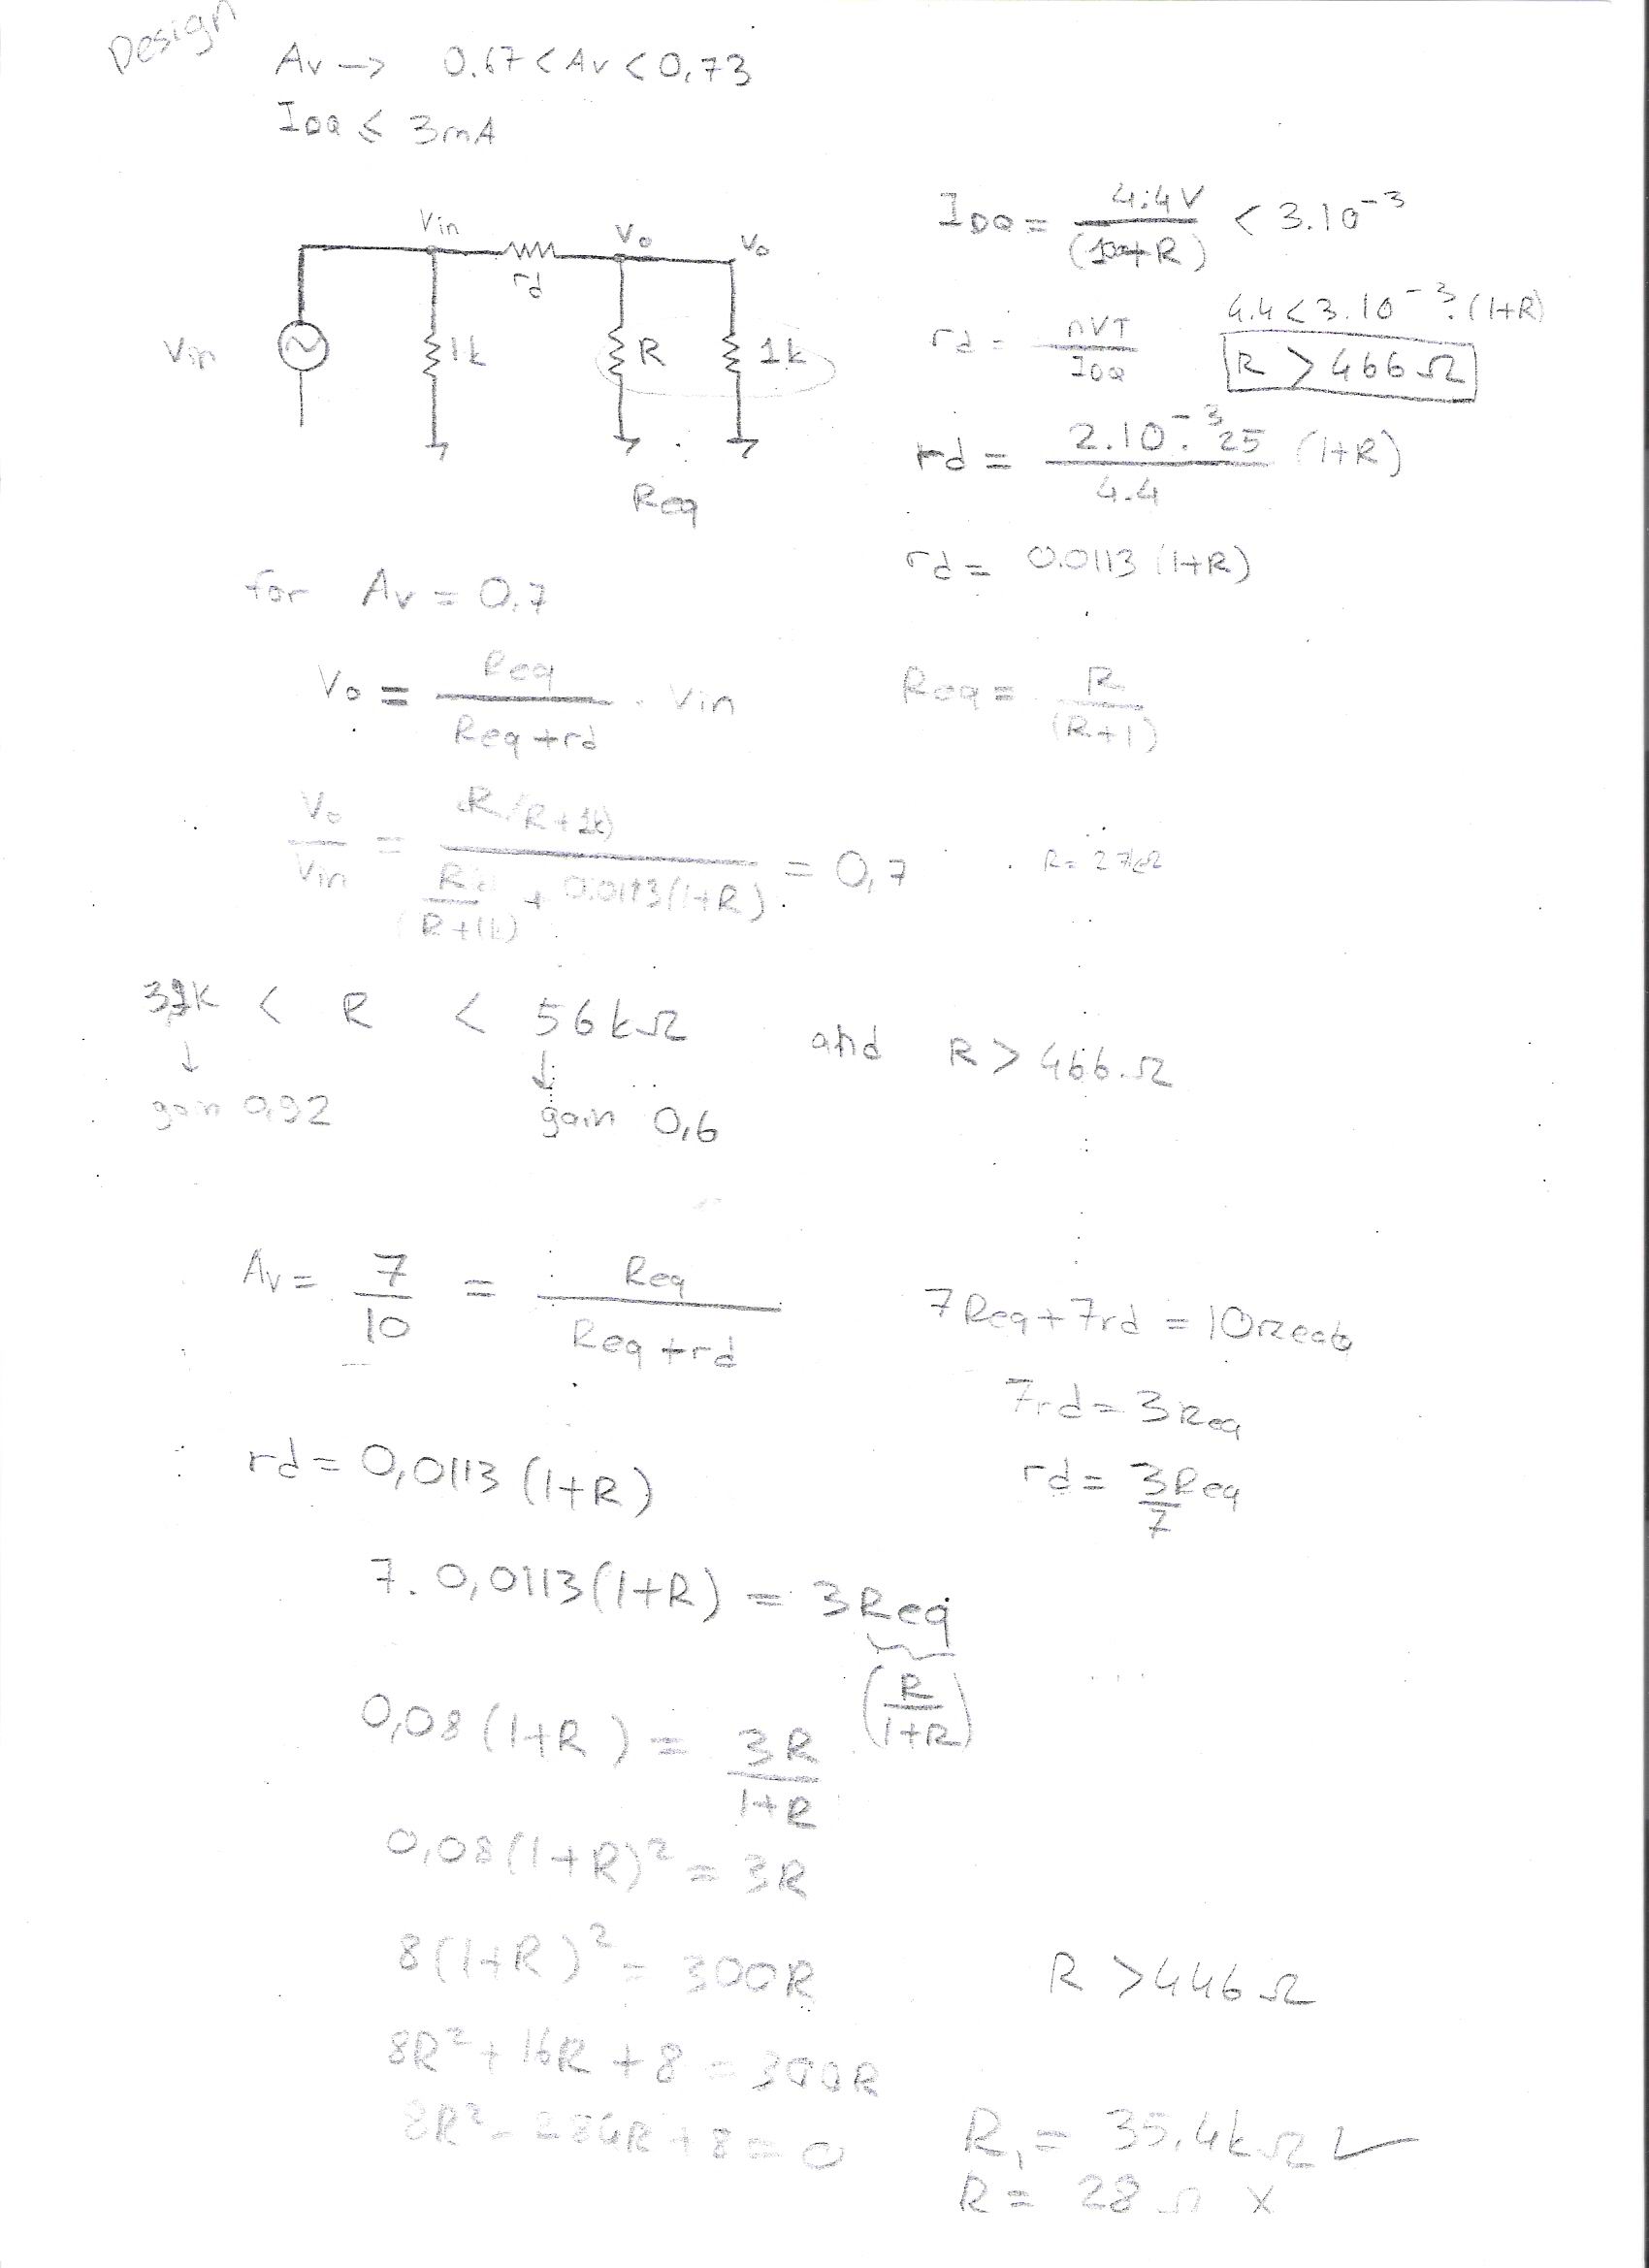 Design
Av → 0.67 < Av < 0,73
IDQ ≤ 3mA
Vin
Vin
rd
Vo
Vo
1k
R
1k
Req
IDQ = 4.4V / ( +R) < 3.10^-3
rd = nVT / IDQ
4.4 < 3.10^-3.(1+R)
R > 466Ω
rd = 2.10^-3.25 / 4.4 (1+R)
rd = 0.0113 (1+R)
for Av = 0.7
Vo = Req / (Req + rd) . Vin
Req = R / (R+1)
Vo / Vin = R/(R+1k) / (R / (R+1k) + 0.0113(1+R)) = 0,7
R = 27kΩ
< R < 56kΩ and R > 466.Ω
↓ ↓
gain 0,92 gain 0,6
Av = 7/10 = Req / (Req + rd)
7Req + 7rd = 10Req
7rd = 3Req
rd = 3Req / 7
rd = 0,0113 (1+R)
7. 0,0113(1+R) = 3Req
(R / 1+R)
0,08 (1+R) = 3R / 1+R
0,08(1+R)² = 3R
8(1+R)² = 300R
R > 446Ω
8R² + 16R + 8 = 300R
8R² - 284R + 8 = 0
R₁ = 35,4kΩ ✓
R = 28Ω X